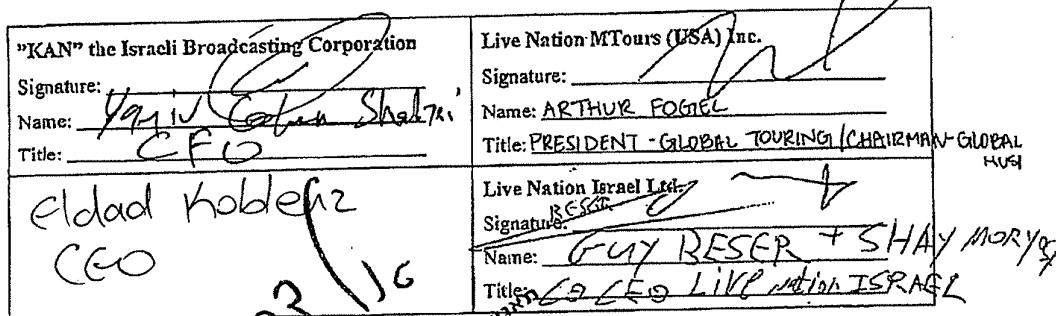 "KAN" the Israeli Broadcasting Corporation
Signature:
Name: Yaniv Cohen
Title: CFO
Live Nation MTours (USA) Inc.
Signature:
Name: ARTHUR FOGEL
Title: PRESIDENT - GLOBAL TOURING / CHAIRMAN - GLOBAL
Eldad Koblenz
CEO
Live Nation Israel Ltd.
Signature:
Name: GUY BESER + SHAY
Title: CO CEO LIVE nation ISRAEL